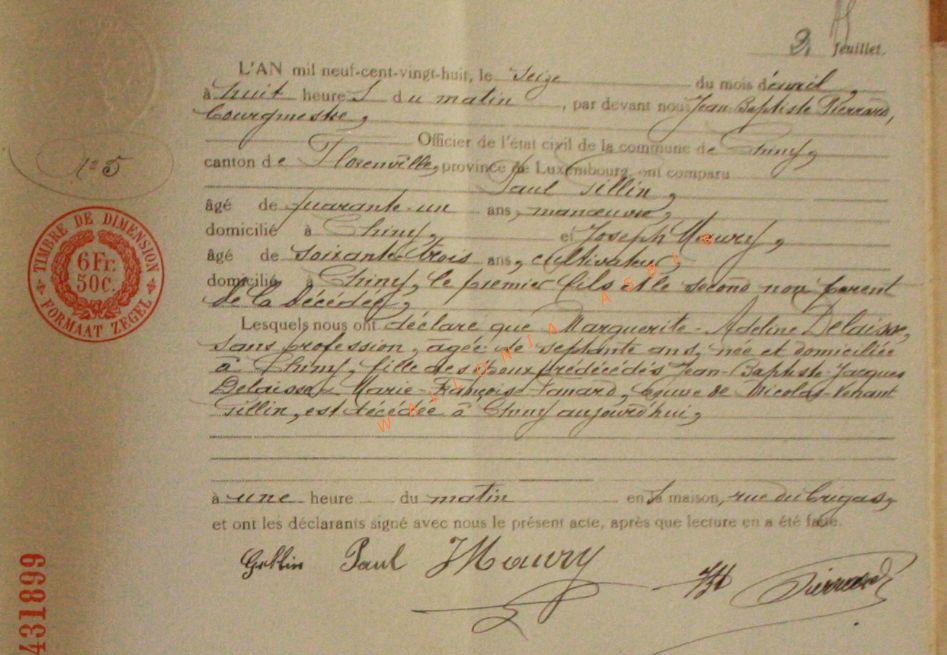 2, feuillet.
L'AN mil neuf-cent-vingt-huit, le seize du mois d'avril,
à huit heures du matin, par devant nous Jean-Baptiste Pierrard,
bourgmestre,
Officier de l'état civil de la commune de Chiny,
n° 5
canton de Florenville, province de Luxembourg, ont comparu
Paul Gillin,
âgé de quarante-un ans, manœuvre,
domicilié à Chiny, et Joseph Maury,
âgé de soixante-trois ans, cultivateur,
domicilié à Chiny, le premier fils et le second non parent
de la décédée,
TIMBRE DE DIMENSION
6 Fr.
50c.
FORMAAT ZEGEL
Lesquels nous ont déclaré que Marguerite-Adeline Delaisse,
sans profession, âgée de septante ans, née et domiciliée
à Chiny, fille des époux prédécédés Jean-Baptiste-Jacques
Delaisse, Marie-François veuve de Nicolas-Venant
Gillin, est décédée à Chiny aujourd'hui,
à une heure du matin en sa maison, rue du
et ont les déclarants signé avec nous le présent acte, après que lecture en a été faite.
Paul J Maury Pierrard
431899
WALLONIA ASBL